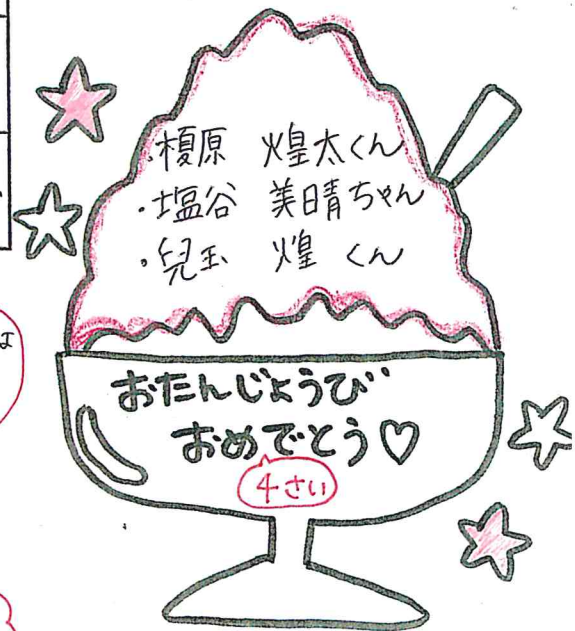 ・榎原 煌太くん
・塩谷 美晴ちゃん
・兒玉 煌 くん
おたんじょうび
おめでとう♡
4さい